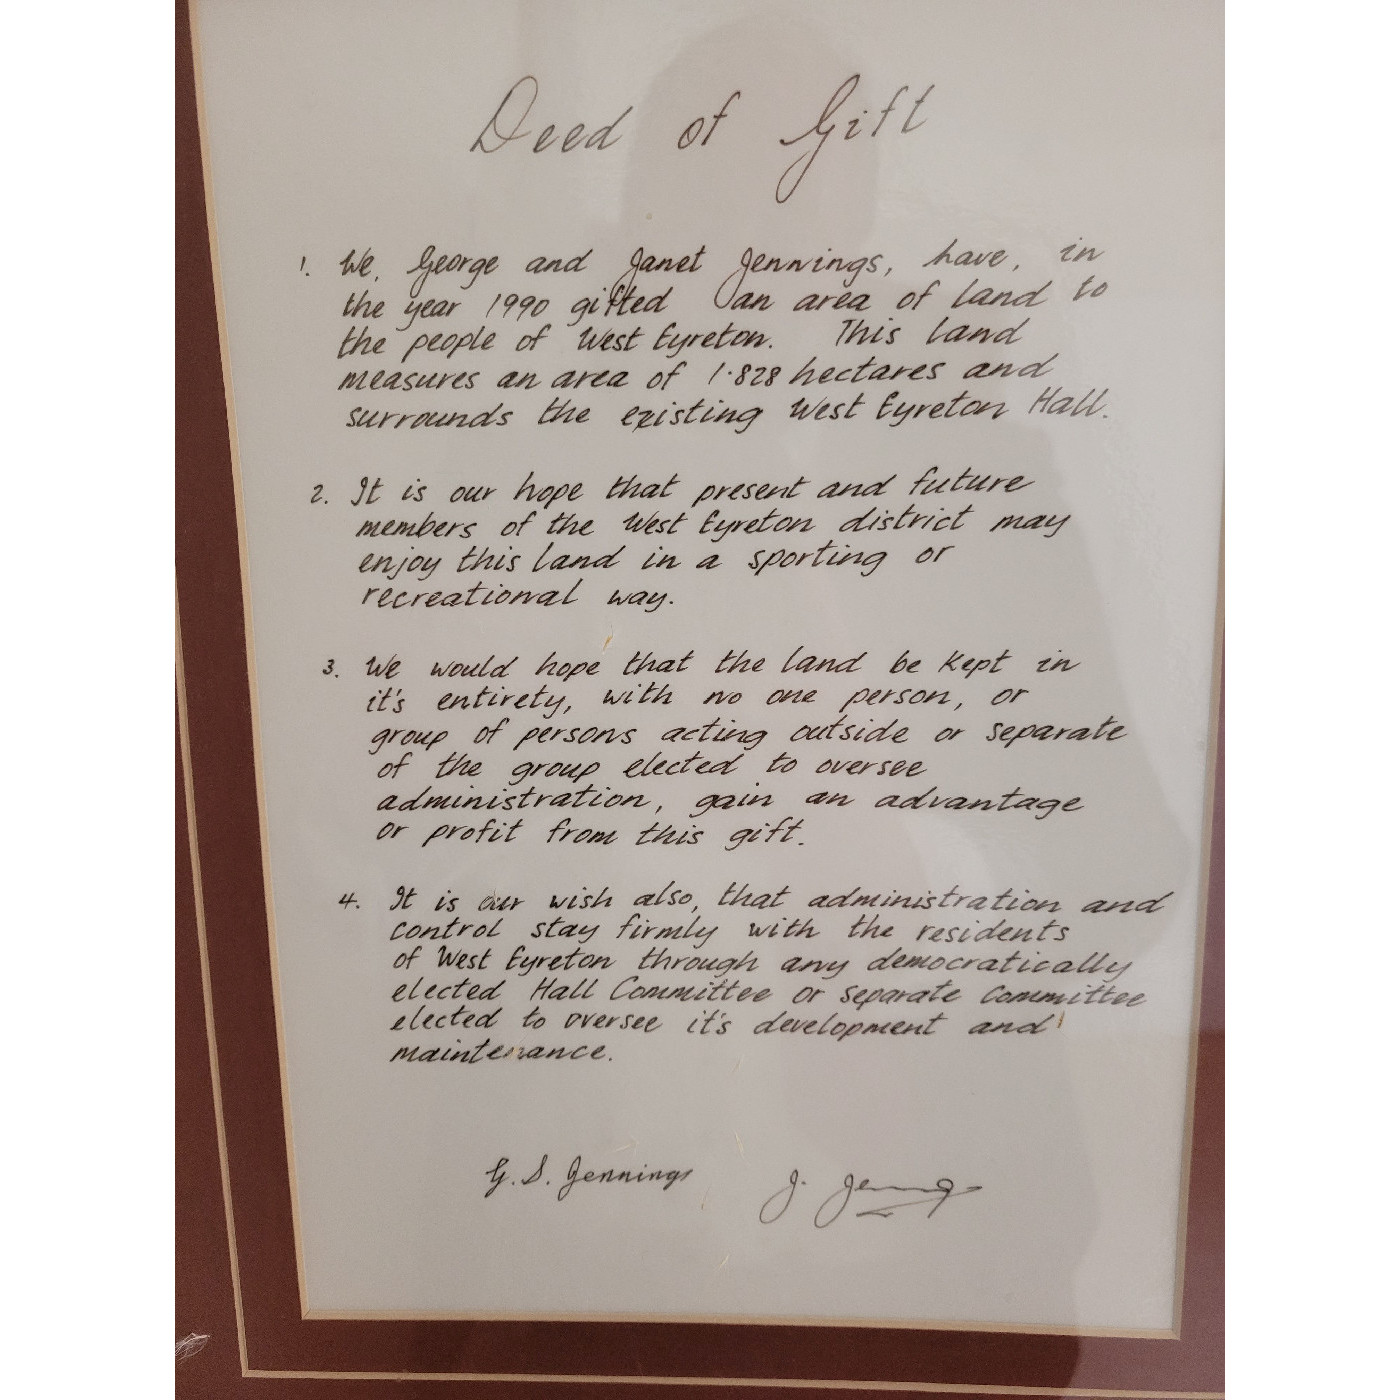 Deed of Gift
1. We, George and Janet Jennings, have, in
the year 1990 gifted an area of land to
the people of West Eyreton. This land
measures an area of 1.828 hectares and
surrounds the existing West Eyreton Hall.
2. It is our hope that present and future
members of the West Eyreton district may
enjoy this land in a sporting or
recreational way.
3. We would hope that the land be kept in
it's entirety, with no one person, or
group of persons acting outside or separate
of the group elected to oversee
administration, gain an advantage
or profit from this gift.
4. It is our wish also, that administration and
control stay firmly with the residents
of West Eyreton through any democratically
elected Hall Committee or separate committee
elected to oversee it's development and
maintenance.
G. S. Jennings J. Jennings